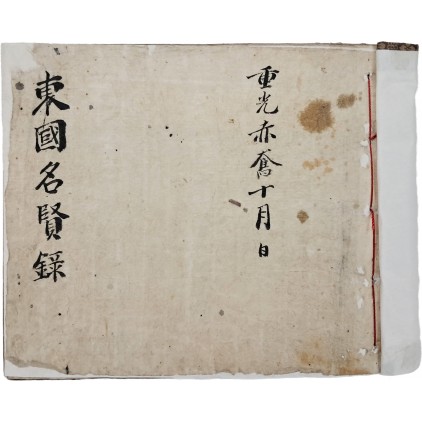 重光赤奮十月日
東國名賢錄